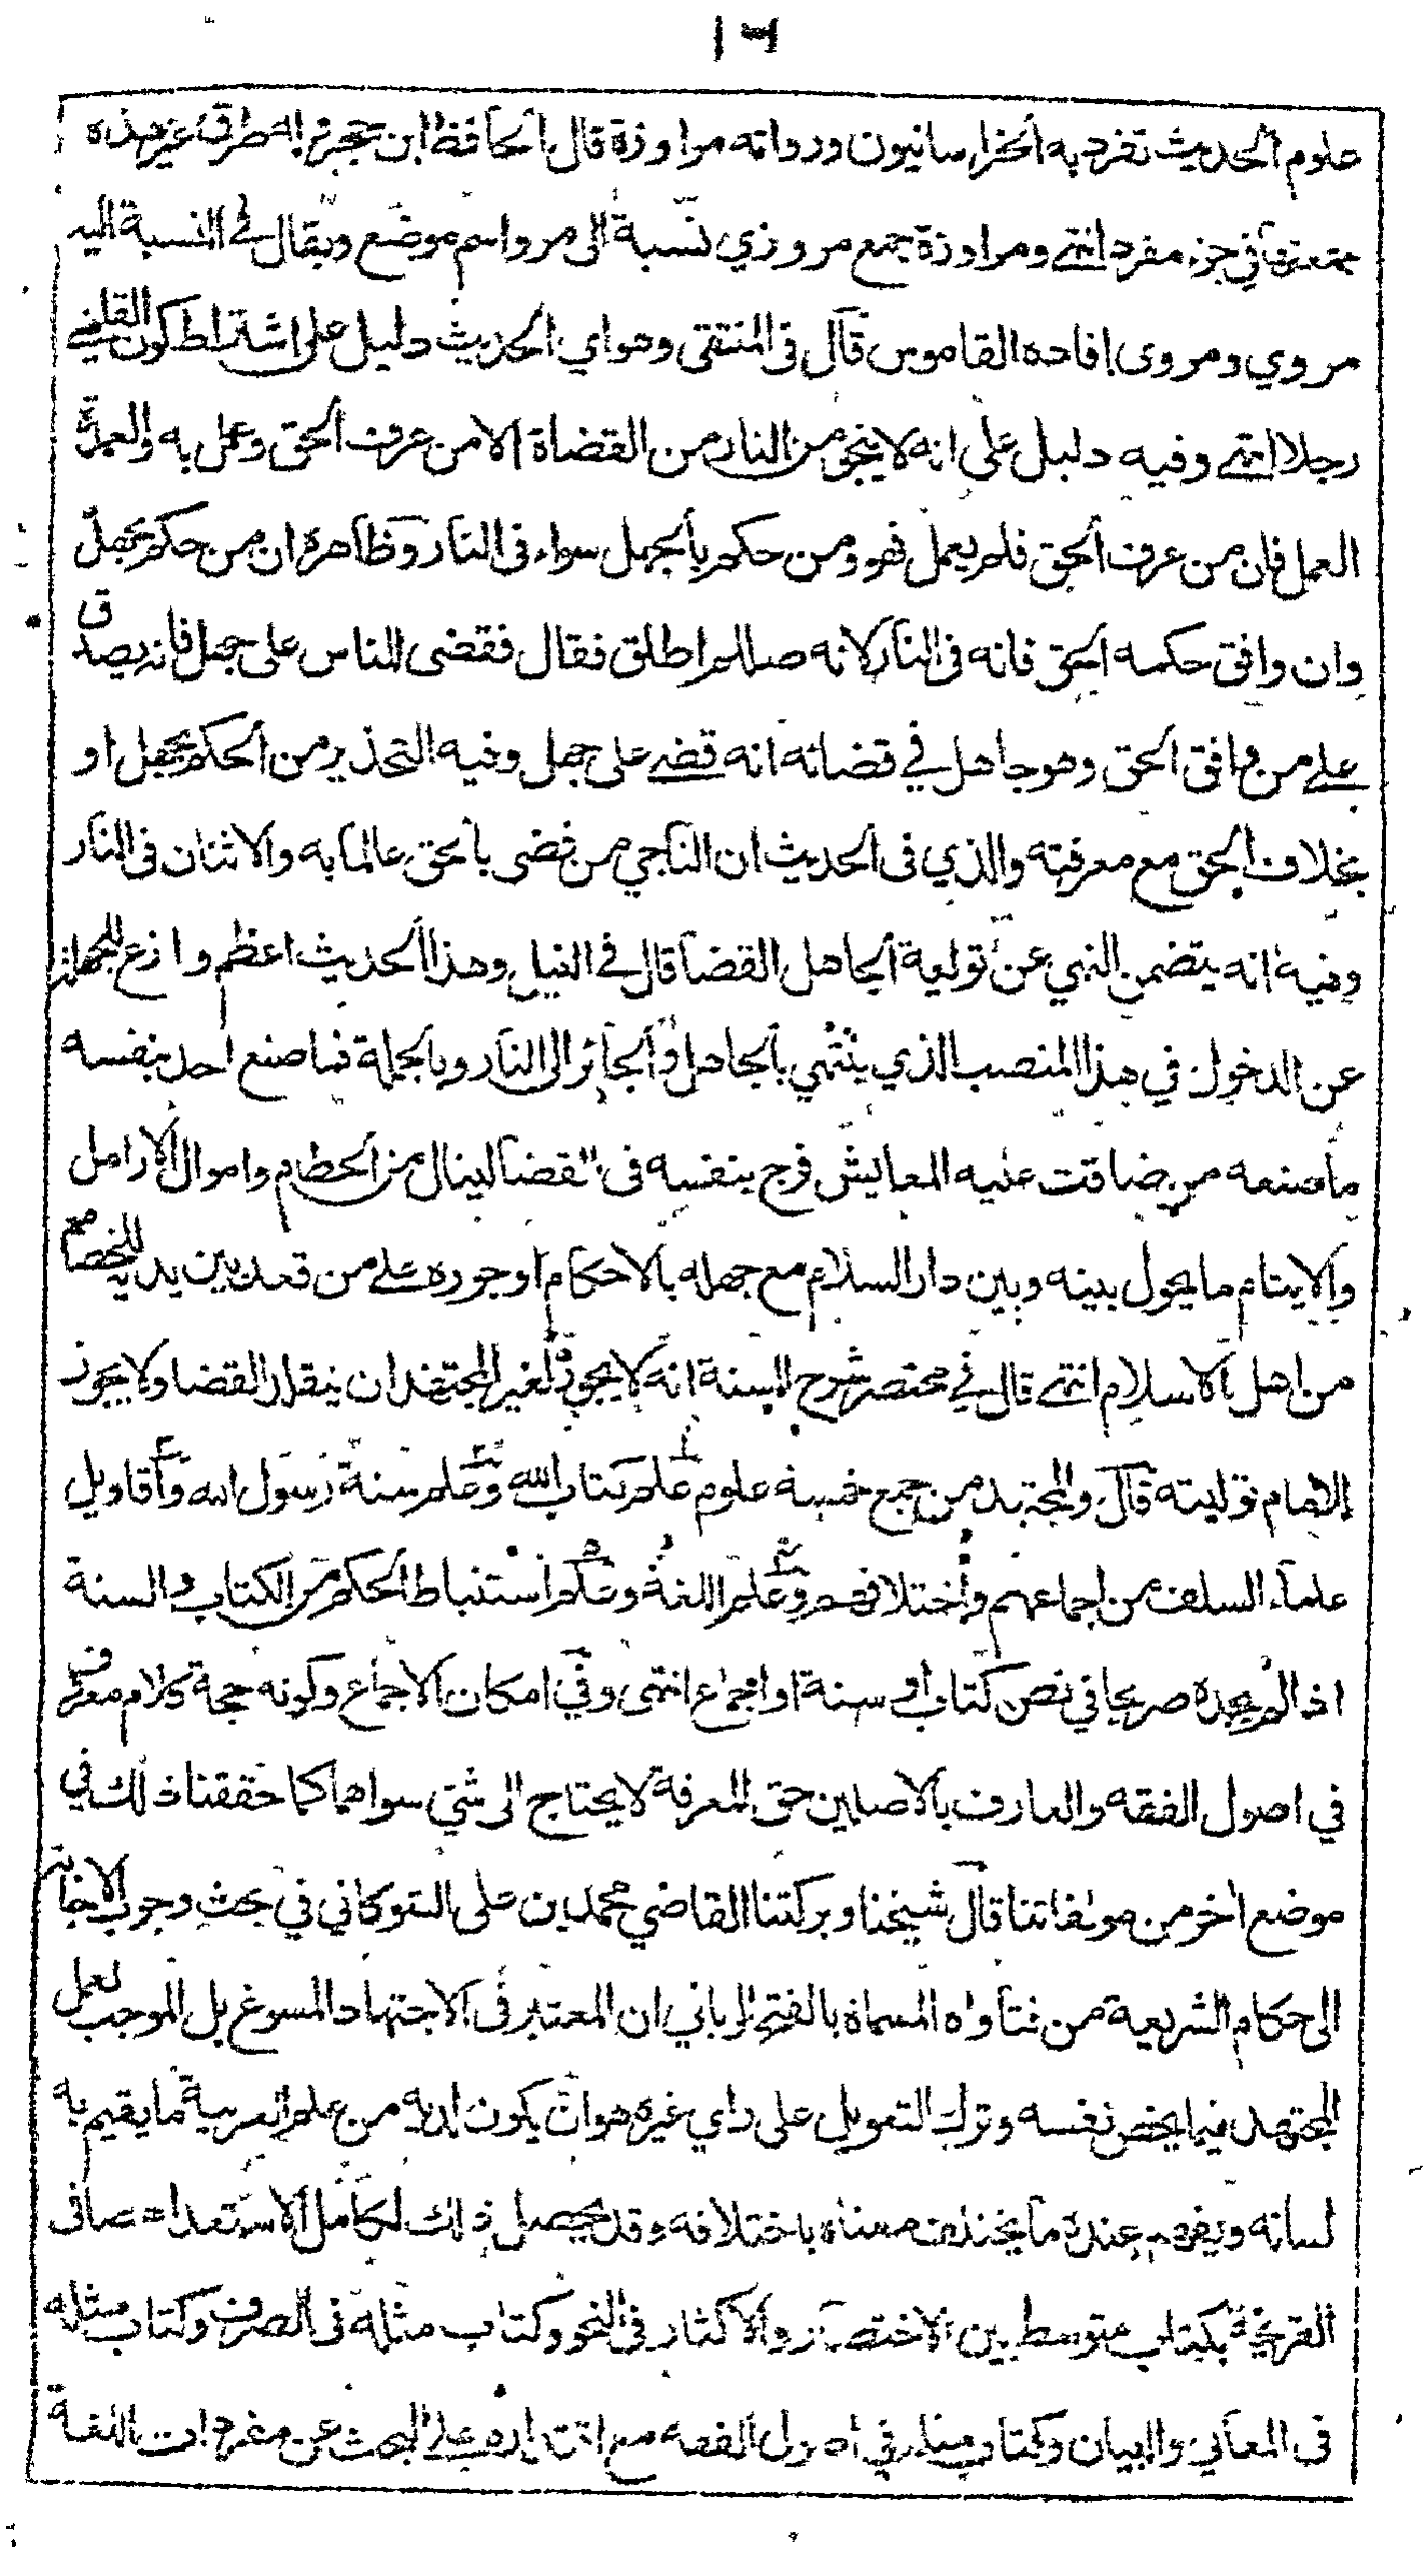 ١٦
علوم الحديث تفرد به الخراسانيون ورواته مراوزة قال الحافظ ابن حجر له طرق غير هذه
جمعتها في جزء مفرد انتهى ومراوزة جمع مروزي نسبة الى مرو اسم موضع ويقال في النسبة اليه
مروي ومروى افاده القاموس قال في المنتقى وهو اي الحديث دليل على اشتراط كون القاضي
رجلا انتهى وفيه دليل على انه لا ينجو من النار من القضاة الا من عرف الحق وعمل به والعمدة
العمل فان من عرف الحق فلم يعمل فهو ومن حكم بالجهل سواء في النار وظاهره ان من حكم بجهل
وان وافق حكمه الحق فانه في النار لانه صللم اطلق فقال فقضى للناس على جهل فانه يصدق
على من وافق الحق وهو جاهل في قضائه انه قضى على جهل وفيه التحذير من الحكم بجهل او
بخلاف الحق مع معرفته والذي في الحديث ان الناجي من قضى بالحق عالما به والاثنان في النار
وفيه انه يتضمن النهي عن تولية الجاهل القضا قال في النيل وهذا الحديث اعظم وازع للجهلة
عن الدخول في هذا المنصب الذي ينتهي بالجاهل والجائر الى النار وبالجملة فما صنع احد بنفسه
ما صنعه من ضاقت عليه المعايش فزج بنفسه في القضا لينال من الحطام واموال الارامل
والايتام ما يحول بينه وبين دار السلام مع جهله بالاحكام او جوره على من قعد بين يديه للخصام
من اهل الاسلام انتهى قال في مختصر شرح السنة انه لا يجوز لغير المجتهد ان يتقلد القضا ولا يجوز
للامام توليته قال والمجتهد من جمع خمسة علوم علم كتاب الله وعلم سنة رسول الله واقاويل
علماء السلف من اجماعهم واختلافهم وعلم اللغة وعلم استنباط الحكم من الكتاب والسنة
اذا لم يجده صريحا في نص كتاب او سنة او اجماع انتهى وفي امكان الاجماع وكونه حجة كلام معروف
في اصول الفقه والعارف بالاصلين حق المعرفة لا يحتاج الى شئ سواهما كما حققنا ذلك في
موضع اخر من مولفاتنا قال شيخنا وبركتنا القاضي محمد بن على الشوكاني في بحث وجوب الاجابة
الى حكام الشريعة من فتاواه المسماة بالفتح الرباني ان المعتبر في الاجتهاد المسوغ بل الموجب لعمل
المجتهد فيما يخص نفسه وترك التعويل على راي غيره هو ان يكون لديه من علم العربية ما يقيم به
لسانه ويفهم عنده ما يختلف معناه باختلافه وقد يحصل ذلك لكامل الاستعداد صافى
القريحة بكتاب متوسط بين الاختصار والاكثار في النحو وكتاب مثله في الصرف وكتاب مثله
في المعاني والبيان وكتاب مثله في اصول الفقه مع اقتداره على البحث عن مفردات اللغة